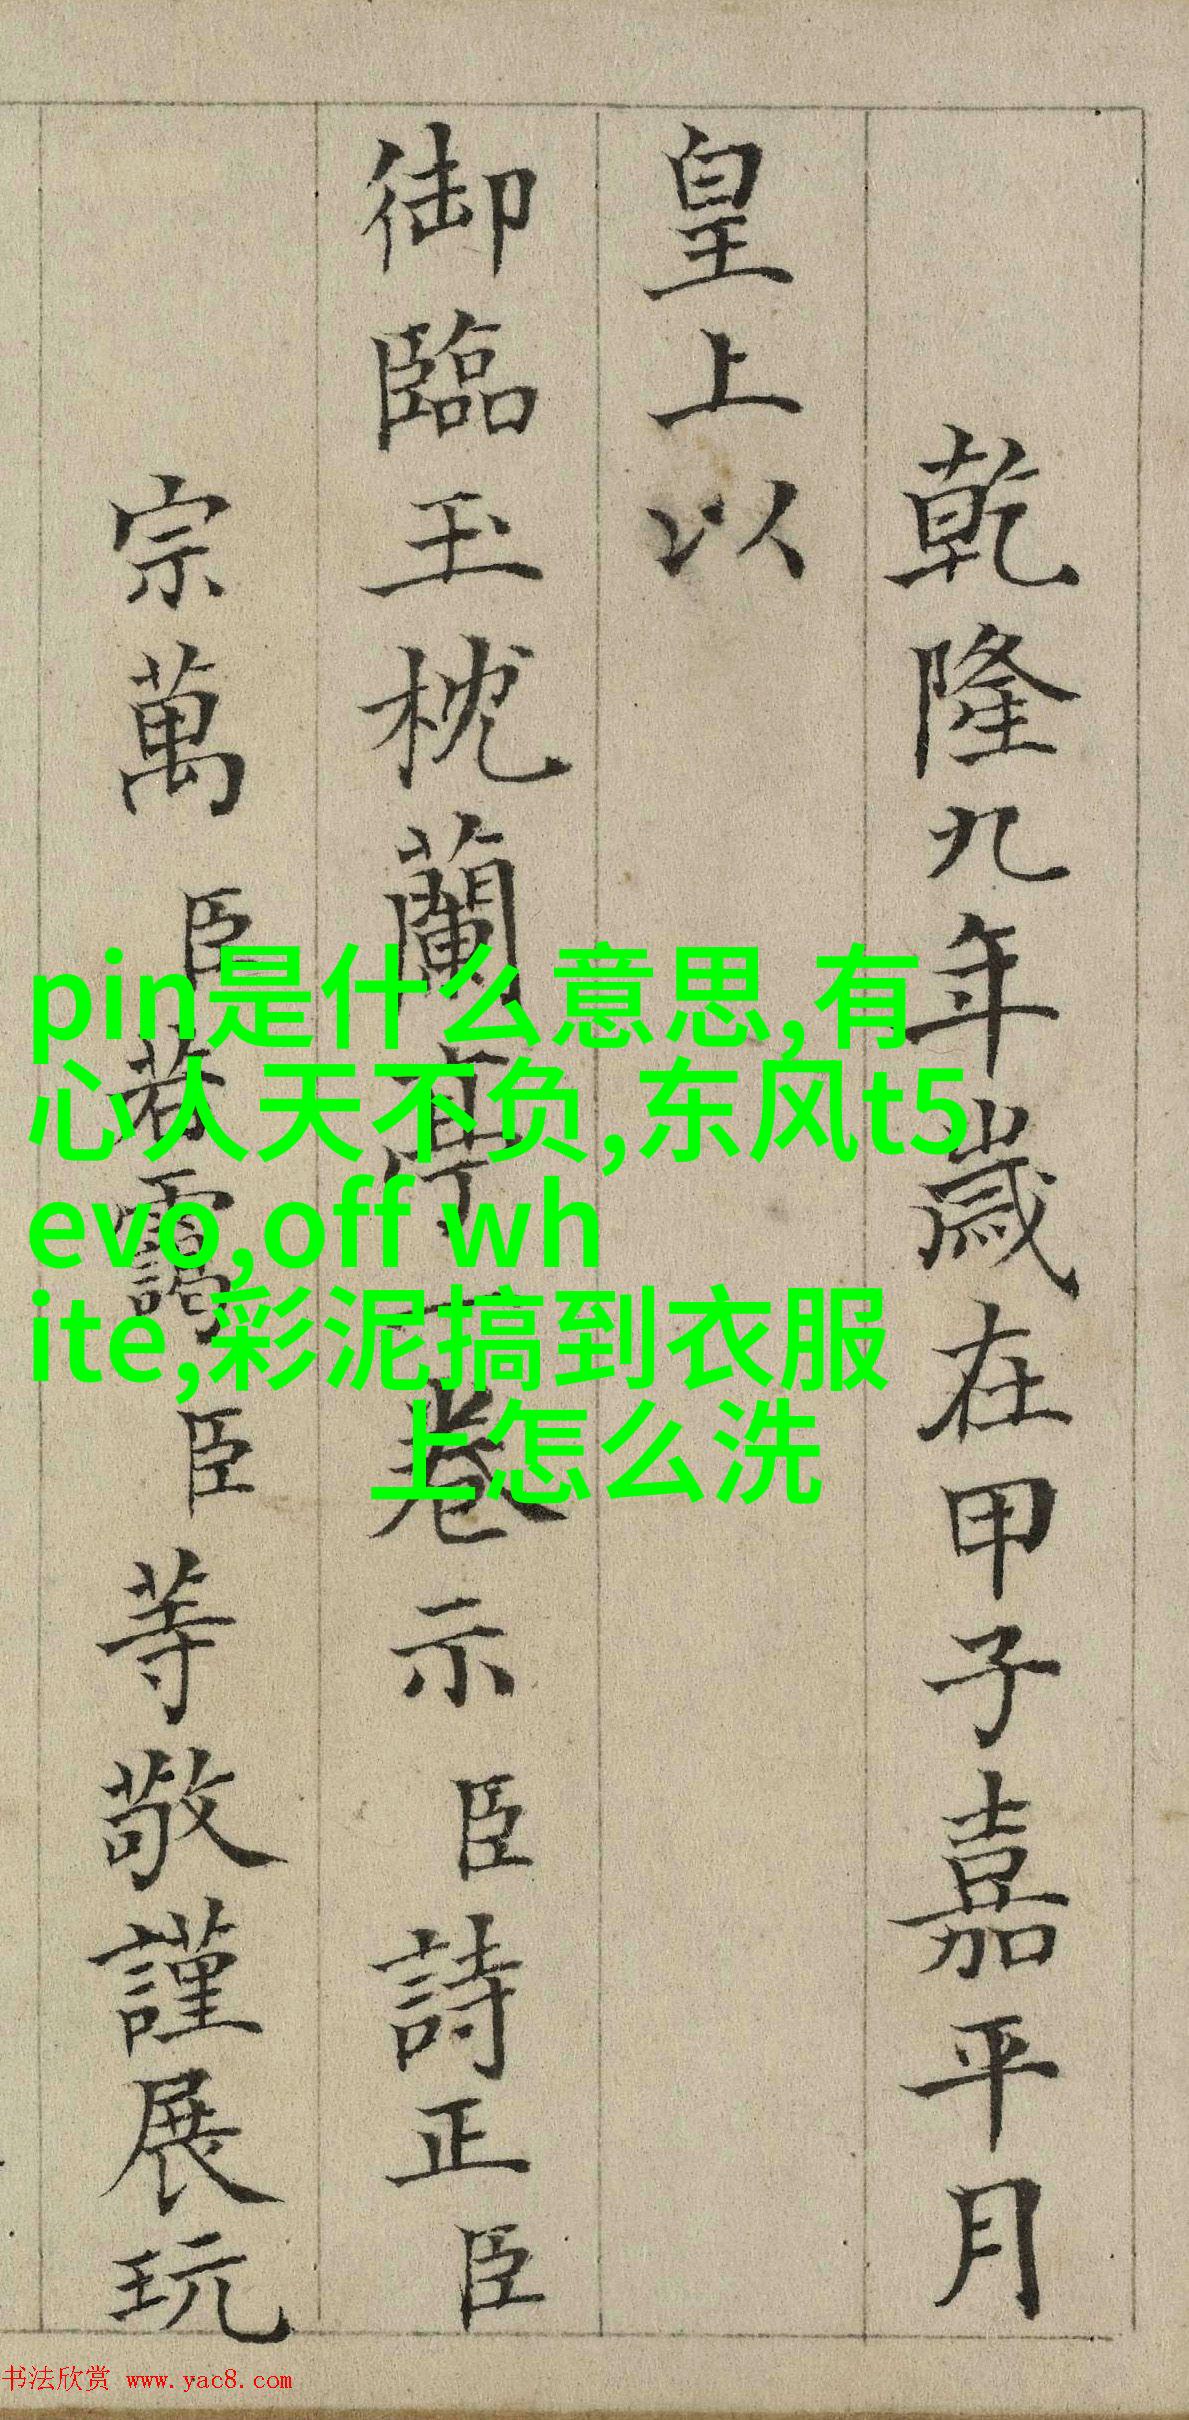 乾隆九年歲在甲子嘉平月
皇上以
御臨玉枕蘭亭一卷示臣詩正臣
宗萬臣若靄臣等敬謹展玩
pin是什么意思,有
心人天不负,东风t5
evo,off wh
ite,彩泥搞到衣服
上怎么洗
书法欣赏 www.yac8.com